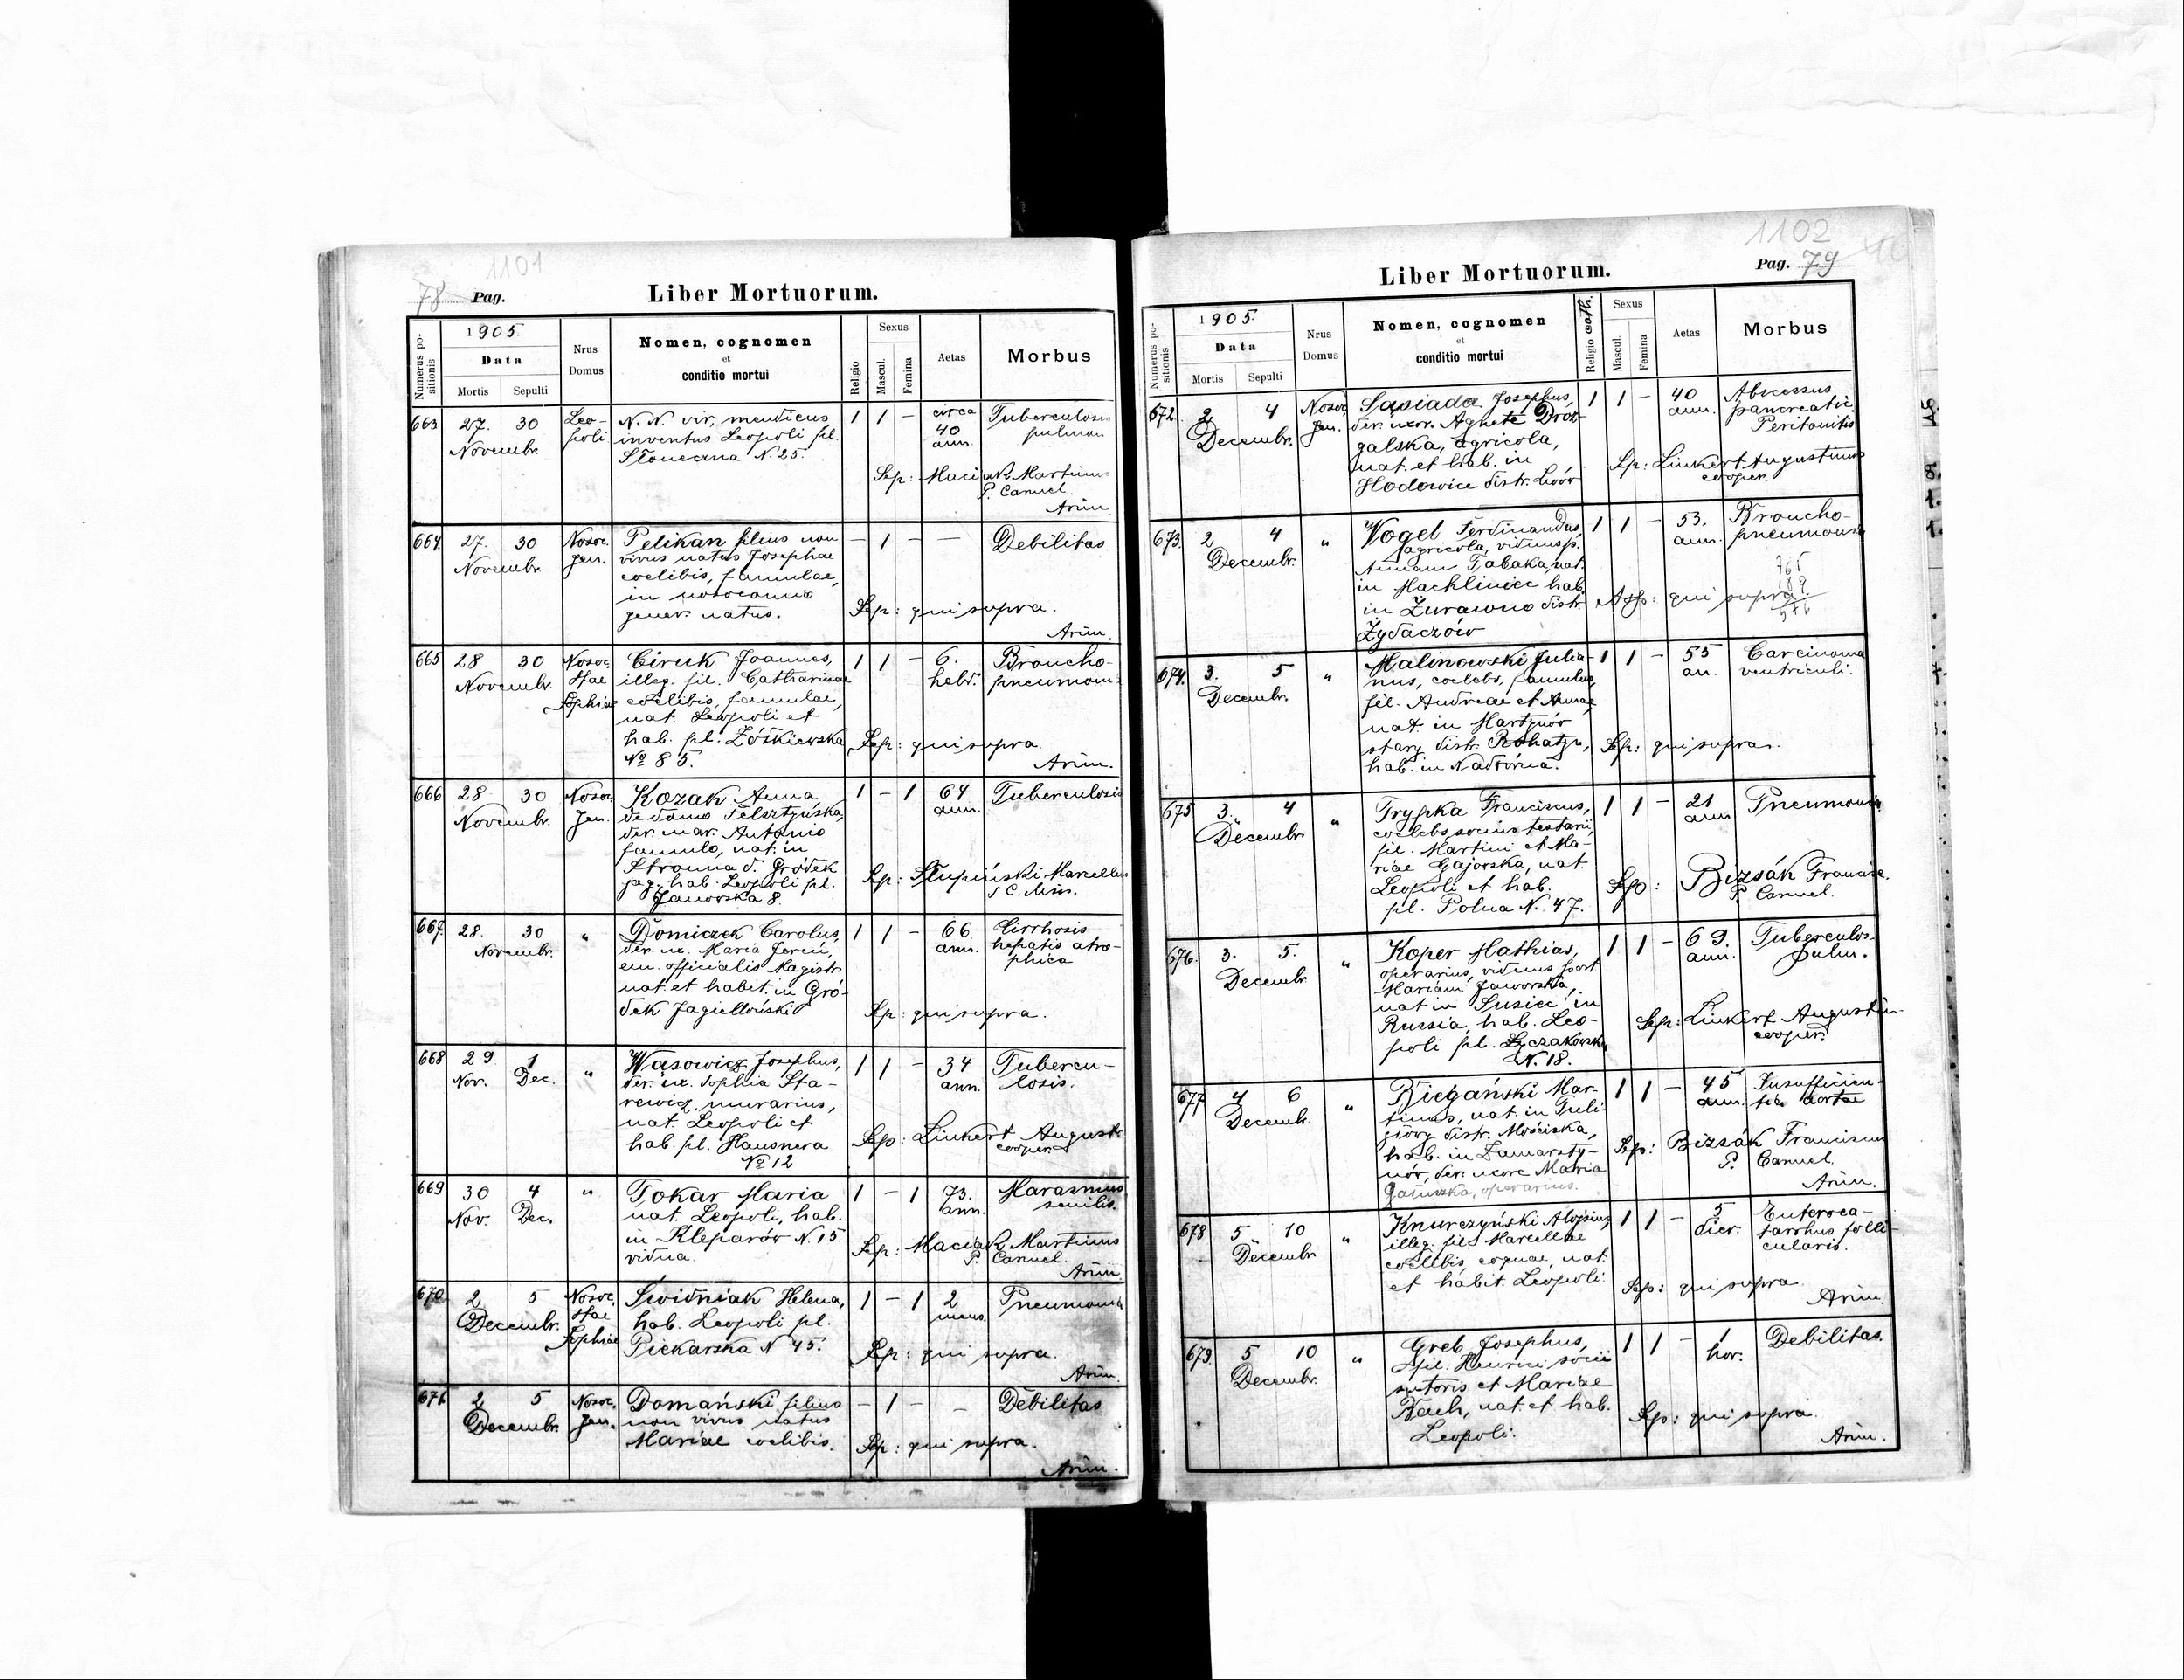 1101
78 Pag.
Liber Mortuorum.
Numerus positionis
1905.
Data
Mortis
Sepulti
Nrus Domus
Nomen, cognomen
et
conditio mortui
Religio
Sexus
Mascul.
Femina
Aetas
Morbus
663 27. 30 Leo- N. N. vir, mendicus 1 1 - circa Tuberculosis
Novembr. poli inventus Leopoli pl. 40 pulmon
Słoneczna N. 25. ann.
Sep: Maciak Martinus
P. Carmel.
Arim.
664. 27. 30 Nosoc. Pelikan filius non - 1 - - Debilitas.
Novembr. gen. vivus natus Josephae
coelibis, famulae,
in nosocomio
gener. natus.
Sep: qui supra.
Arim.
665 28 30 Nosoc. Ciruk Joannes, 1 1 - 6. Broncho-
Novembr. Stae illeg. fil. Catharinae hebd. pneumonia
Sophiae coelibis, famulae,
nat. Leopoli et
hab. pl. Żółkiewska
№ 85.
Sep: qui supra.
Arim.
666 28 30 Nosoc. Kozak Anna 1 - 1 64 Tuberculosis
Novembr. Gen. de domo Felsztyńska, ann.
der. mar. Antonio
famulo, nat. in
Stronna d. Gródek
jag. hab. Leopoli pl.
Janowska 8.
Sep: Słupiński Marcellus
C. Min.
667. 28. 30 " Domiczek Carolus, 1 1 - 66. Cirrhosis
Novembr. der. u. Maria ann. hepatis atro-
em. officialis Magistr. phica
nat. et habit. in Gró-
dek Jagielloński
Sep: qui supra.
668 29 1 " Wasowicz Josephus, 1 1 - 34 Tubercu-
Nov. Dec. der. ux. Sophia Sta- ann. losis.
rewicz, murarius,
nat. Leopoli et
hab. pl. Hausnera
№ 12
Sep: Linkert August.
cooper.
669 30 4 " Tokar Maria 1 - 1 73. Marasmus
Nov. Dec. nat. Leopoli, hab. ann. senilis.
in Kleparów N. 15.
vidua.
Sep: Maciak Martinus
P. Carmel.
Arim.
670 2 5 Nosoc. Świdniak Helena, 1 - 1 2 Pneumonia
Decembr. Stae hab. Leopoli pl. mens.
Sophiae Piekarska N 45.
Sep: qui supra.
Arim.
671. 2 5 Nosoc. Domański filius - 1 - - Debilitas
Decembr. Gen. non vivus natus
Mariae coelibis.
Sep: qui supra.
Arim.
1102
Liber Mortuorum.
Pag. 79
Numerus positionis
1905.
Data
Mortis
Sepulti
Nrus Domus
Nomen, cognomen
et
conditio mortui
Religio cath.
Sexus
Mascul.
Femina
Aetas
Morbus
672. 2 4 Nosoc. Sasiada Josephus, 1 1 - 40 Abscessus
Decembr. Gen. der. uxor. Aghete Droz- ann. pancreatic.
galska, agricola, Peritonitis
nat. et hab. in
Hodowice distr. Lwów
Sep: Linkert Augustinus
cooper.
673. 2 4 " Vogel Ferdinandus, 1 1 - 53. Broncho-
Decembr. agricola, viduus p. ann. pneumonia
Annam Tabaka, nat.
in Machliniec hab.
in Żurawno distr.
Żydaczów
Sep: qui supra.
674. 3. 5 " Malinowski Julia- 1 1 - 55 Carcinoma
Decembr. nus, coelebs, famulus, an. ventriculi.
fil. Andreae et Annae,
nat. in Martynów
stary distr. Rohatyn,
hab. in Nadwórna.
Sep: qui supra.
675 3. 4 " Trypka Franciscus, 1 1 - 21 Pneumonia
Decembr. coelebs, socius testarii, ann
fil. Martini et Ma-
riae Gajorska, nat.
Leopoli et hab.
pl. Polna N. 47.
Sep: Bizsák Francisc.
P. Carmel.
676. 3. 5. " Koper Mathias, 1 1 - 69. Tuberculos.
Decembr. operarius, viduus post ann. pulm.
Mariam Jaworska,
nat. in Susiec in
Russia, hab. Leo-
poli pl. Łyczakowska
N. 18.
Sep: Linkert Augustin.
cooper.
677 4 6 " Biegański Mar- 1 1 - 45 Insufficien-
Decemb. tinus, nat. in Tuli- ann. tia aortae
głowy distr. Mościska,
hab. in Zamarsty-
nów, der. uxore Maria
operarius.
Sep: Bizsák Franciscus
P. Carmel.
Arim.
678 5 10 " Knurczyński Aloysius, 1 1 - 5 Enteroca-
Decembr. illeg. fil. Marcellae dier. tarrhus folli-
coelibis, coquae, nat. cularis.
et habit. Leopoli.
Sep: qui supra.
Arim.
679. 5 10 " Greb Josephus, 1 1 - 1 Debilitas.
Decembr. fil. Henrici socii hor.
sutoris et Mariae
Bach, nat. et hab.
Leopoli.
Sep: qui supra.
Arim.